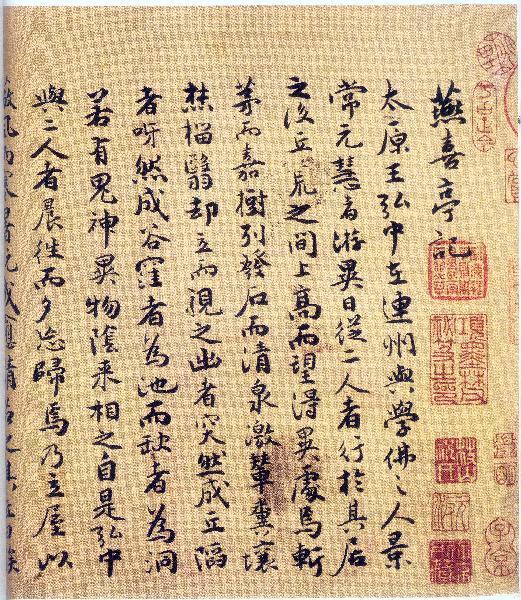 燕喜亭記
太原王弘中在連州與學佛之人景
常元慧者遊異日從二人者行於其居
之後丘荒之間上高而望得異處焉斬
茅而嘉樹列發石而清泉激輦糞壤
焚榴翳却立而視之出者突然成丘陷
者呀然成谷窪者為池而缺者為洞
若有鬼神異物陰来相之自是弘中
與二人者晨往而夕忘歸焉乃立屋以